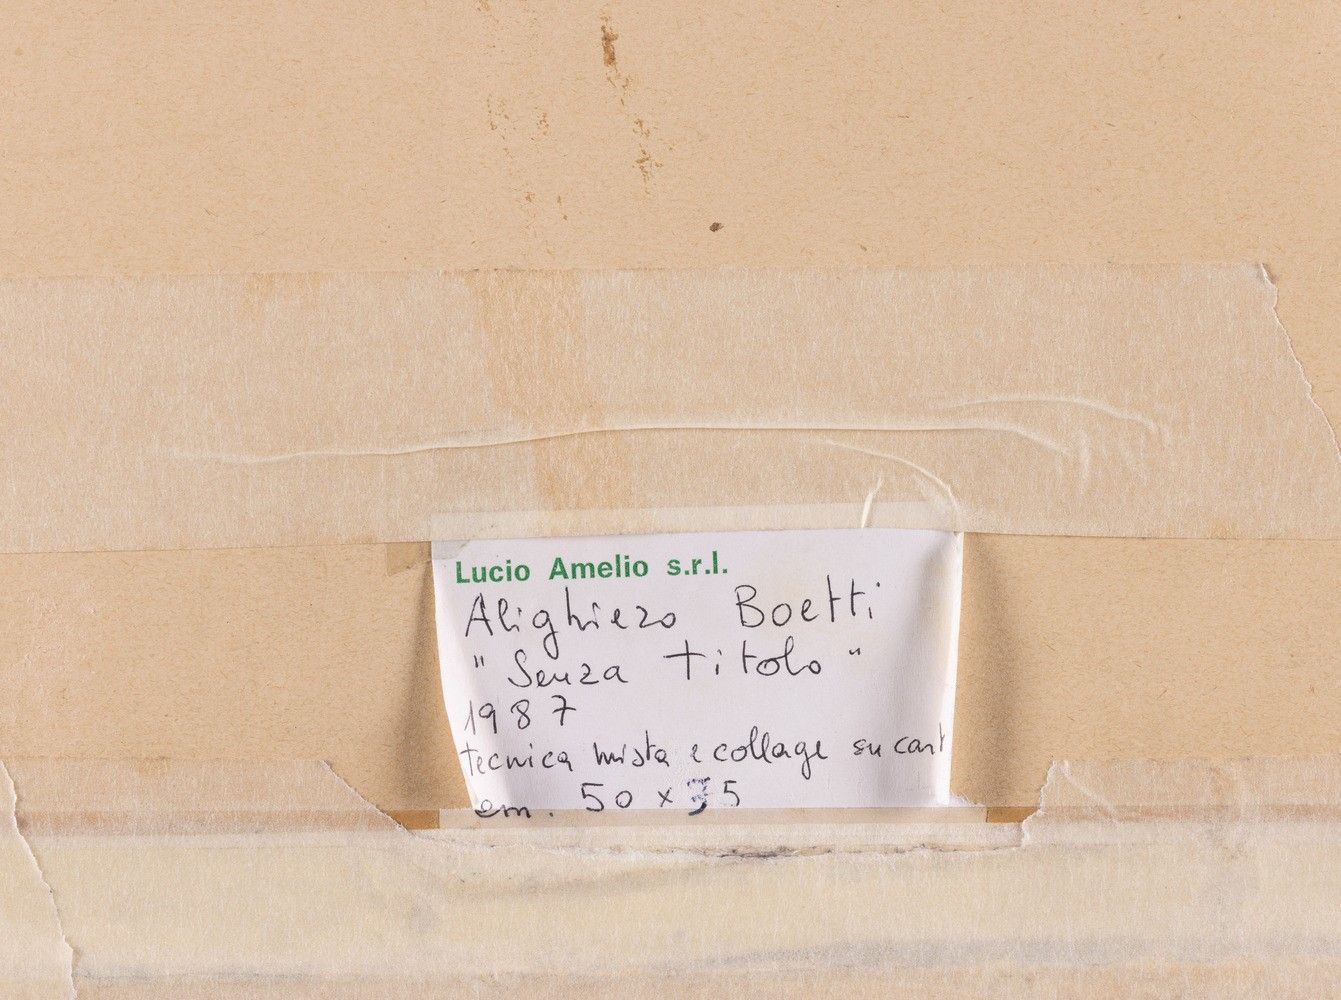 Lucio Amelio s.r.l.
Alighiero Boetti
"Senza titolo"
1987
tecnica mista e collage su cart
cm. 50 x 35